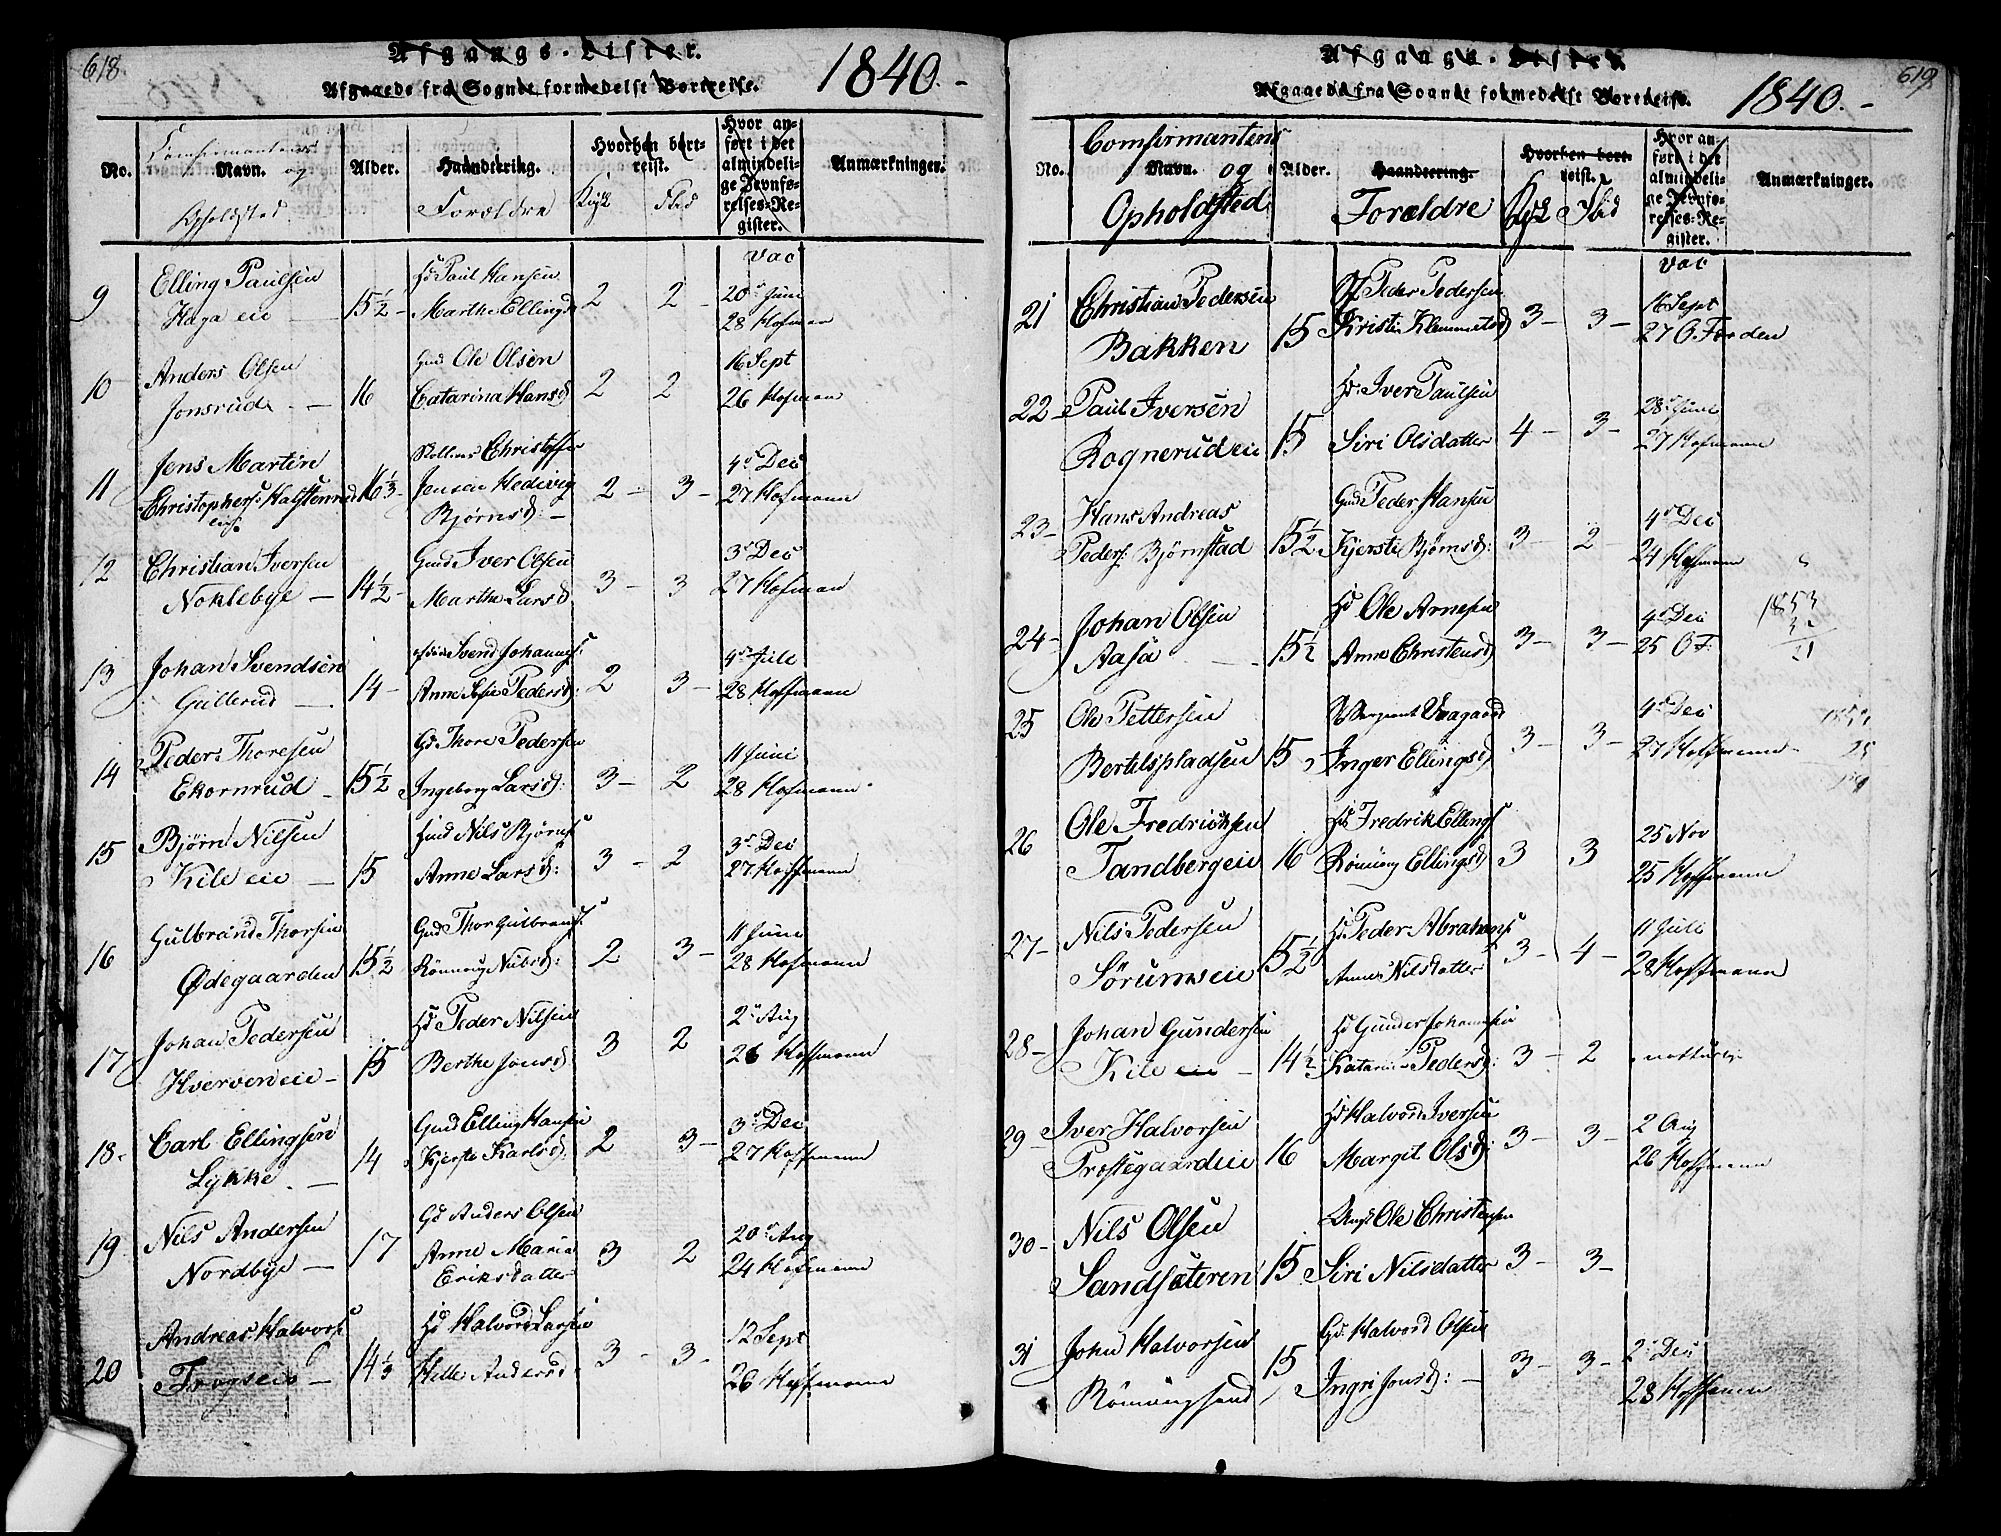 618.
Afgangs-Lister.
Afgaaede fra Sognet formedelst Bortreise.
1840.-
No.
Confirmantens
Navn. og
Opholdsted.
Alder.
Haandtering.
Forældre
Hvorhen bort-
reist.
Hvor an-
ført i det
almindeli-
ge Jevnfø-
relses-Re-
gister.
Anmærkninger.
vac
9 Elling Paulsen
Haga eie
15½
Hd Paul Hansen
Marthe Ellingd
2 2
20de Juni
28 Hofman
10 Anders Olsen
Jonsrud
16
Gmd Ole Olsen
Catarina Hansd
2 2
16 Sept
26 Hofman
11 Jens Martin
Christophers. Halstenrud
eie
16⅓
Christoffer
Jensen Hedivig
Bjørnsd:
2 3
4de Dec
27 Hofmann
12 Christian Iversen
Noklebye
14½
Gmd Iver Olsen
Marthe Larsd
3 3
3de Dec
27 Hofman
13 Johan Svendsen
Gullerud
14
Svend Johanness:
Anne Sofie Pedersd:
2 3
4de Juli
28 Hoffmann
14 Peder Thoresen
Ekornrud
15½
Gd Thore Pedersen
Ingeborg Larsd:
3 2
11 Juni
28 Hofmann
15 Bjørn Nilsen
Kile eie
15
Hmd Nils Bjørns
Anne Larsd:
3 2
3de Dec
27 Hoffmann
16 Gulbrand Thorsen
Ødegaarden
15½
Gmd Thor Gulbrands.
Rönnoug Nilsd:
2 3
11 Juni
28 Hofmann
17 Johan Pedersen
Hverven eie
15
Hd Peder Nilsen
Berthe Jonsd
3 2
2de Aug
26 Hoffmann
18. Carl Ellingsen
Lykke
14
Gmd Elling Hansen
Kjersti Karlsd.
2 3
3de Dec
27 Hoffmann
19 Nils Andersen
Nordbye
17
Gd Anders Olsen
Anne Maria
Eriksdatter
3 2
20de Aug
24 Hofmann
20 Andreas Halvors.
Frogseie
14⅓
Hd Halvord Larsen
Helle Andersd
3 3
12 Sept
26 Hoffmann
619.
Afgangs-Lister.
Afgaaede fra Sognet formedelst Bortreise.
1840.-
No.
Comfirmantens
Navn. og
Opholdsted
Alder.
Haandtering.
Forældre
Hvorhen bort-
reist.
Hvor an-
ført i det
almindeli-
ge Jevnfø-
relses-Re-
gister.
Anmærkninger.
vac
21 Christian Pedersen
Bakken
15
Peder Pedersen
Kristi Klemmetsd
3 3
16 Sept
27 O Forden
22 Paul Iversen
Rognerud eie
15
Hd. Iver Paulsen
Siri Olsdatter
4 3
28de Juni
27 Hofmann
23 Hans Andreas
Peders. Bjørnstad
15½
Gmd Peder Hansen
Kjersti Bjørnsd:
3 2
4de Dec
24 Hofmann
24 Johan Olsen
Aasa
15½
Hd Ole Arnesen
Anne Christensd
3 3
4de Dec
25 O F.
1853
32
21
25 Ole Pettersen
Bertelspladsen
15
Inger Ellingsd
3 3
4de Dec
27 Hoffmann
26 Ole Fredrichsen
Tandbergeie
16
Hd Fredrik Ellings
Rönnoug Ellingsd
3 3
25 Nov
25 Hoffmann
27 Nils Pedersen
Sörumseie
15½
Hd Peder Abrahams
Anne Nilsdatter
3 4
11 Juli
28 Hoffmann
28 Johan Gundersen
Kile eie
14½
Hd Gunder Johannesen
Katarina Pedersd:
3 2
29 Iver Halvorsen
Præstegaardeie
16
Hd Halvord Iversen
Margit Olsd:
3 3
2 Aug
26 Hoffmann
30 Nils Olsen
Sandsæteren
15
Ole Christensen
Siri Nilsdatter
3 3
31 John Halvorsen
15
Gd. Halvord Olsen
Ingri Jonsd:
3 3
2de Dec
28 Hoffmann